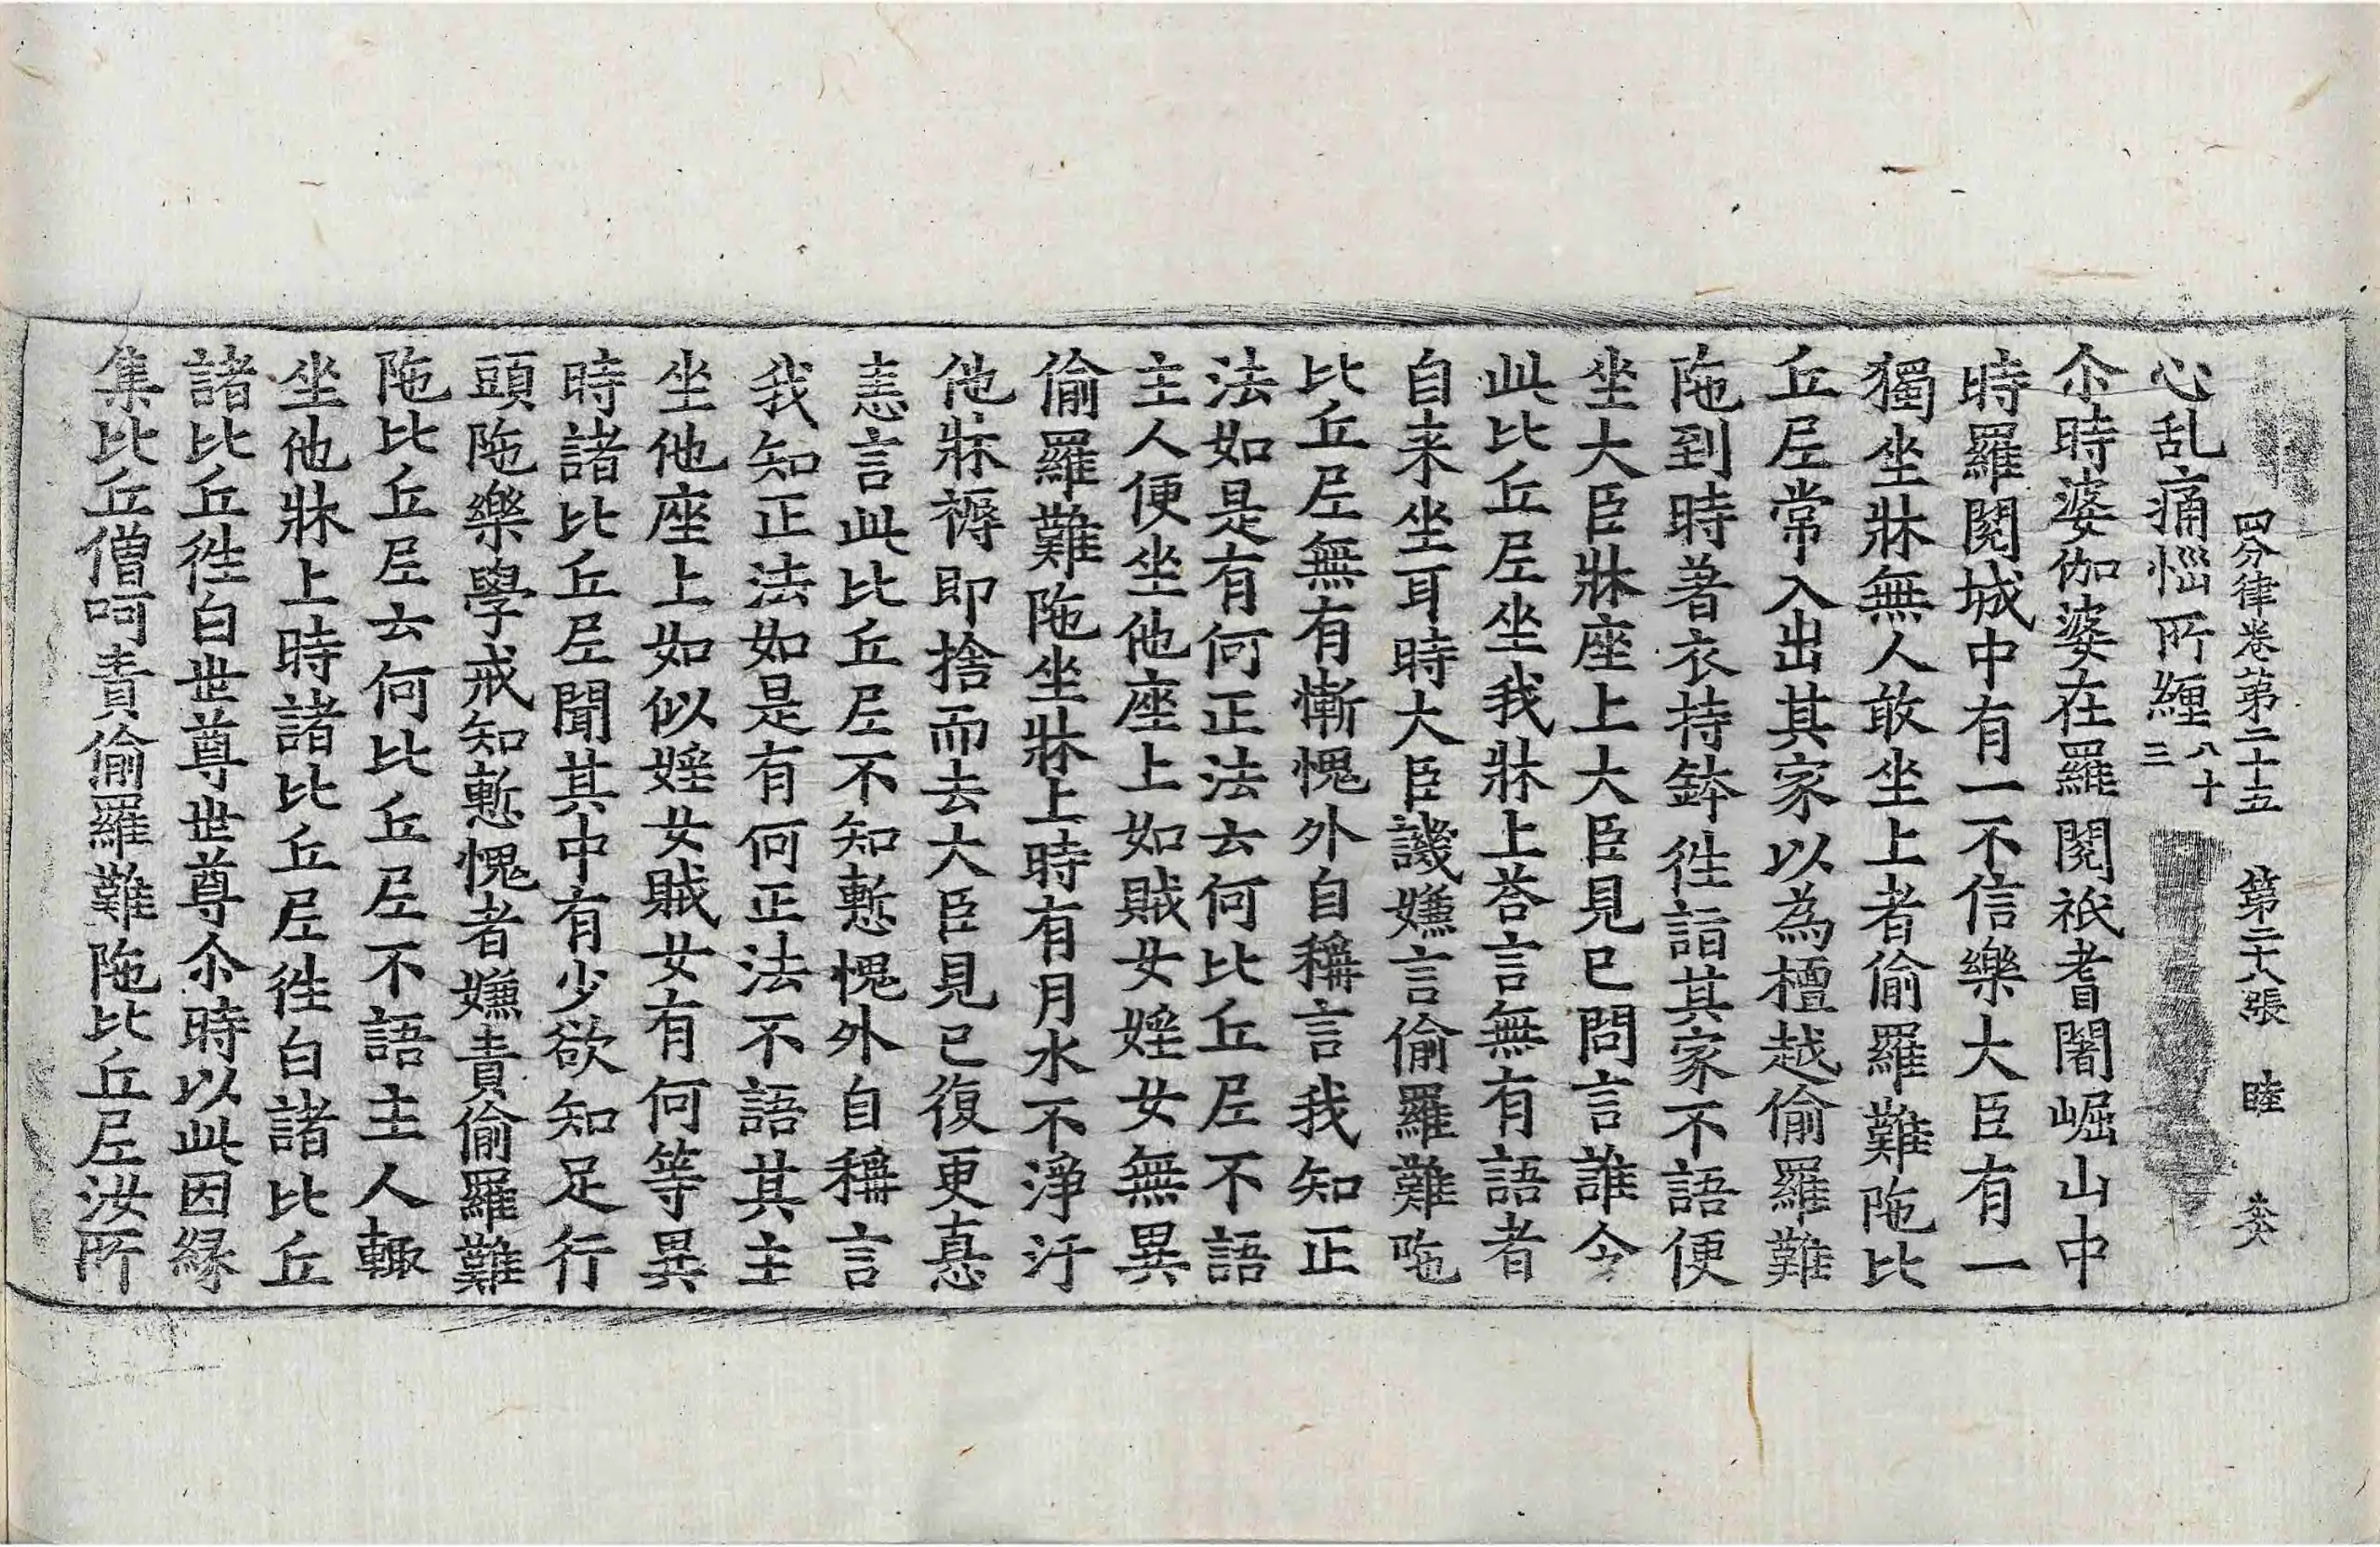 四分律卷第二十五 第二十八張 睦
心乱痛惱所纏八十三
尒時婆伽婆在羅閱祇耆闍崛山中
時羅閱城中有一不信樂大臣有一
獨坐牀無人敢坐上者偷羅難陁比
丘尼常入出其家以為檀越偷羅難
陁到時著衣持鉢徃詣其家不語便
坐大臣牀座上大臣見已問言誰令
此比丘尼坐我牀上荅言無有語者
自来坐耳時大臣譏嫌言偷羅難陁
比丘尼無有慚愧外自稱言我知正
法如是有何正法云何比丘尼不語
主人便坐他座上如賊女婬女無異
偷羅難陁坐牀上時有月水不淨汙
他牀褥即捨而去大臣見已復更恚
恚言此比丘尼不知慙愧外自稱言
我知正法如是有何正法不語其主
坐他座上如似婬女賊女有何等異
時諸比丘尼聞其中有少欲知足行
頭陁樂學戒知慙愧者嫌責偷羅難
陁比丘尼云何比丘尼不語主人輙
坐他牀上時諸比丘尼徃白諸比丘
諸比丘徃白世尊世尊尒時以此因緣
集比丘僧呵責偷羅難陁比丘尼汝所